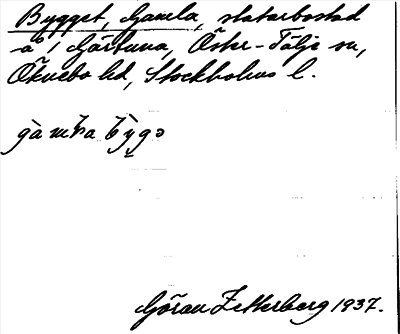 Bygget, Gamla, statarbostad
på 1 Gärtuna, Öster-Tälje sn,
Öknebo hd, Stockholms l.
gàmḷa bỳgə
Göran Zetterberg 1937.